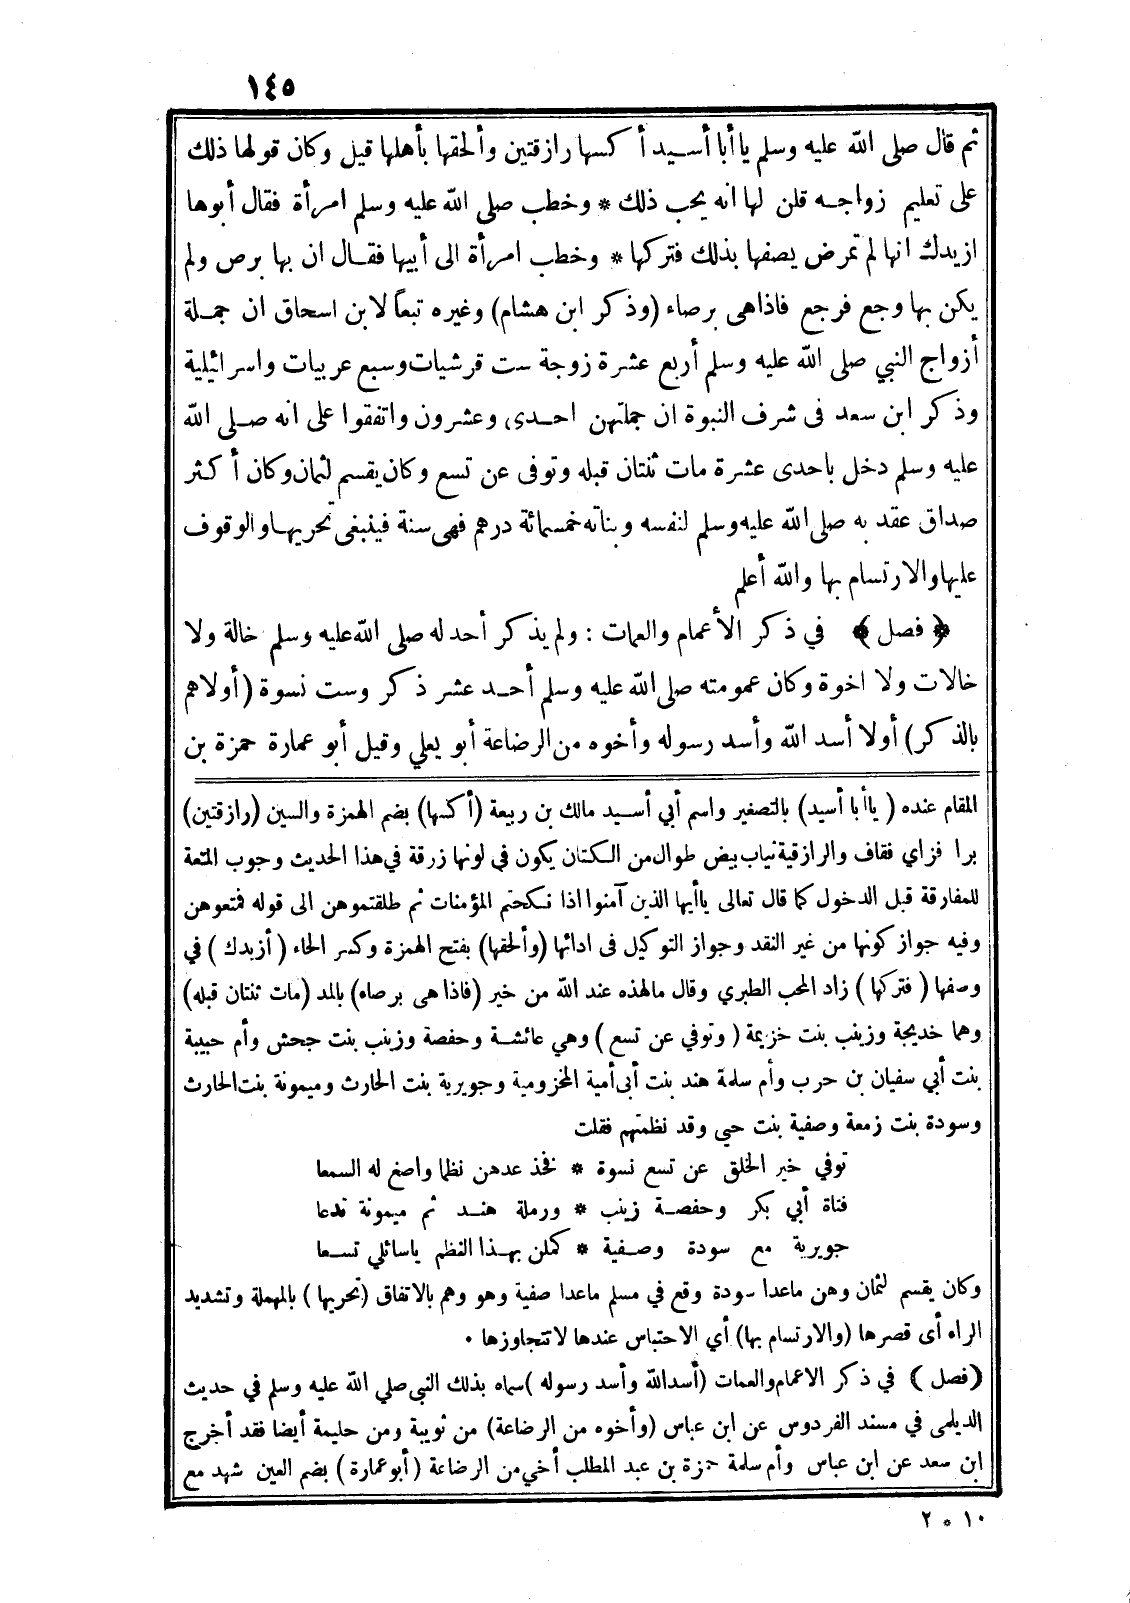 ١٤٥
ثم قال صلى الله عليه وسلم ياأبا أسيد أكسها رازقتين وألحقها بأهلها قيل وكان قولها ذلك
على تعليم زواجه قلن لها انه يحب ذلك * وخطب صلى الله عليه وسلم امرأة فقال أبوها
ازيدك انها لم تمرض يصفها بذلك فتركها * وخطب امرأة الى أبيها فقال ان بها برص ولم
يكن بها وجع فرجع فاذاهى برصاء (وذكر ابن هشام) وغيره تبعاً لابن اسحاق ان جملة
أزواج النبي صلى الله عليه وسلم أربع عشرة زوجة ست قرشيات وسبع عربيات واسرائيلية
وذكر ابن سعد فى شرف النبوة ان جملتهن احدى وعشرون واتفقوا على انه صلى الله
عليه وسلم دخل باحدى عشرة مات ثنتان قبله وتوفى عن تسع وكان يقسم لثمان وكان أكثر
صداق عقد به صلى الله عليه وسلم لنفسه وبناته خمسمائة درهم فهى سنة فينبغى تحريها والوقوف
عليها والارتسام بها والله أعلم
﴿ فصل ﴾ في ذكر الأعمام والعمات : ولم يذكر أحد له صلى الله عليه وسلم خالة ولا
خالات ولا اخوة وكان عمومته صلى الله عليه وسلم أحد عشر ذكر وست نسوة (أولاهم
بالذكر) أولا أسد الله وأسد رسوله وأخوه من الرضاعة أبو يعلي وقيل أبو عمارة حمزة بن
المقام عنده ( ياأبا أسيد) بالتصغير واسم أبي أسيد مالك بن ربيعة (أكسها) بضم الهمزة والسين (رازقتين)
برا فزاي فقاف والرازقية ثياب بيض طوال من الكتان يكون فى لونها زرقة في هذا الحديث وجوب المتعة
للمفارقة قبل الدخول كما قال تعالى ياأيها الذين آمنوا اذا نكحتم المؤمنات ثم طلقتموهن الى قوله فمتعوهن
وفيه جواز كونها من غير النقد وجواز التوكيل فى ادائها (وألحقها) بفتح الهمزة وكسر الحاء ( أزيدك ) في
وصفها ( فتركها ) زاد المحب الطبري وقال مالهذه عند الله من خير (فاذا هى برصاء) بالمد (مات ثنتان قبله)
وهما خديجة وزينب بنت خزيمة ( وتوفي عن تسع ) وهي عائشة وحفصة وزينب بنت جحش وأم حبيبة
بنت أبي سفيان بن حرب وأم سلمة هند بنت أبى أمية المخزومية وجويرية بنت الحارث وميمونة بنت الحارث
وسودة بنت زمعة وصفية بنت حيي وقد نظمتهم فقلت
توفي خير الخلق عن تسع نسوة * فخذ عدهن نظما واصغ له السمعا
فتاة أبي بكر وحفصة زينب * ورملة هند ثم ميمونة تدعا
جويرية مع سودة وصفية * كملن بهذا النظم ياسائلي تسعا
وكان يقسم لثمان وهن ماعدا سودة وقع في مسلم ماعدا صفية وهو وهم بالاتفاق (تحريها ) بالمهملة وتشديد
الراء أى قصرها (والارتسام بها) أي الاحتباس عندها لاتتجاوزها ٠
(فصل ) في ذكر الاعمام والعمات (أسد الله وأسد رسوله )سماه بذلك النبي صلي الله عليه وسلم في حديث
الديلمى في مسند الفردوس عن ابن عباس (وأخوه من الرضاعة) من ثويبة ومن حليمة أيضا فقد أخرج
ابن سعد عن ابن عباس وأم سلمة حمزة بن عبد المطلب أخي من الرضاعة (أبو عمارة) بضم العين شهد مع
١٠ * ٢